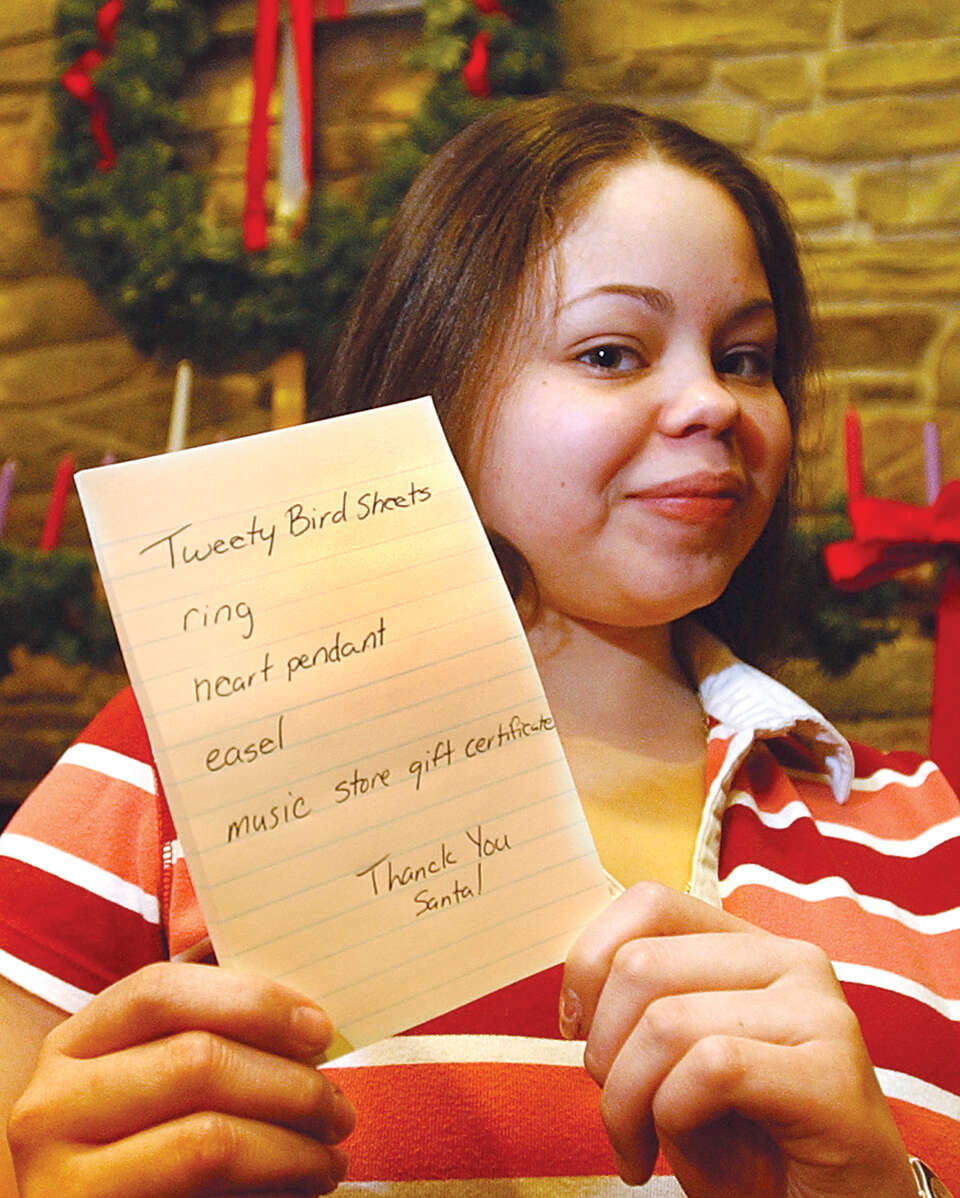 Tweety Bird Sheets
ring
heart pendant
easel
music store gift certificate
Thanck You
Santa!